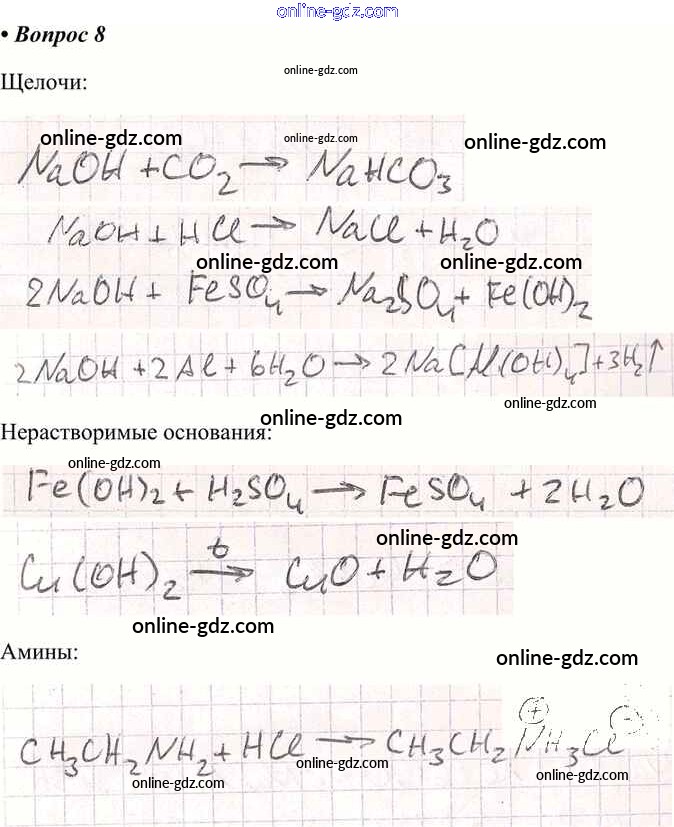 online-gdz.com
• Вопрос 8
online-gdz.com
Щелочи:
online-gdz.com online-gdz.com online-gdz.com
NaOH + CO2 → NaHCO3
NaOH + HCl → NaCl + H2O
online-gdz.com online-gdz.com
2NaOH + FeSO4 → Na2SO4 + Fe(OH)2
2NaOH + 2Al + 6H2O → 2Na[Al(OH)4] + 3H2↑
online-gdz.com
online-gdz.com
Нерастворимые основания:
online-gdz.com
Fe(OH)2 + H2SO4 → FeSO4 + 2H2O
online-gdz.com
t
Cu(OH)2 → CuO + H2O
online-gdz.com
Амины:
online-gdz.com
CH3CH2NH2 + HCl → CH3CH2N⊕H3Cl⊖
online-gdz.com online-gdz.com online-gdz.com